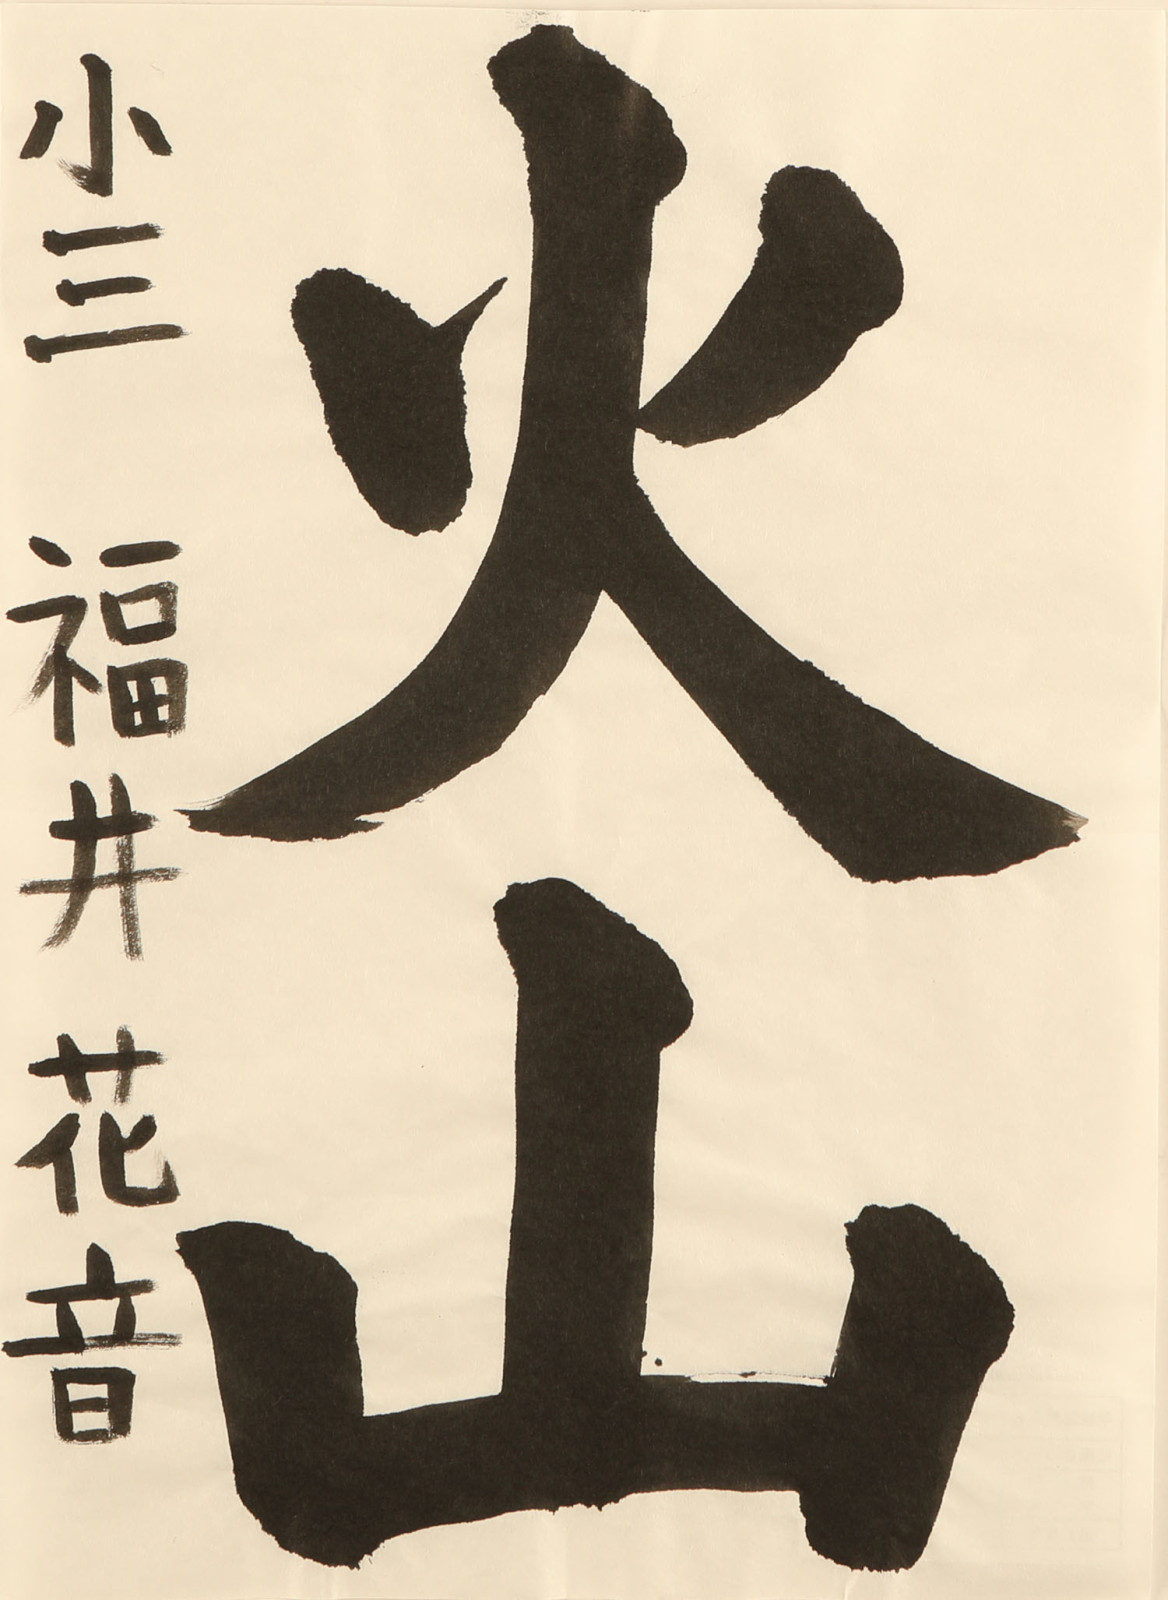 火山
小三 福井 花音